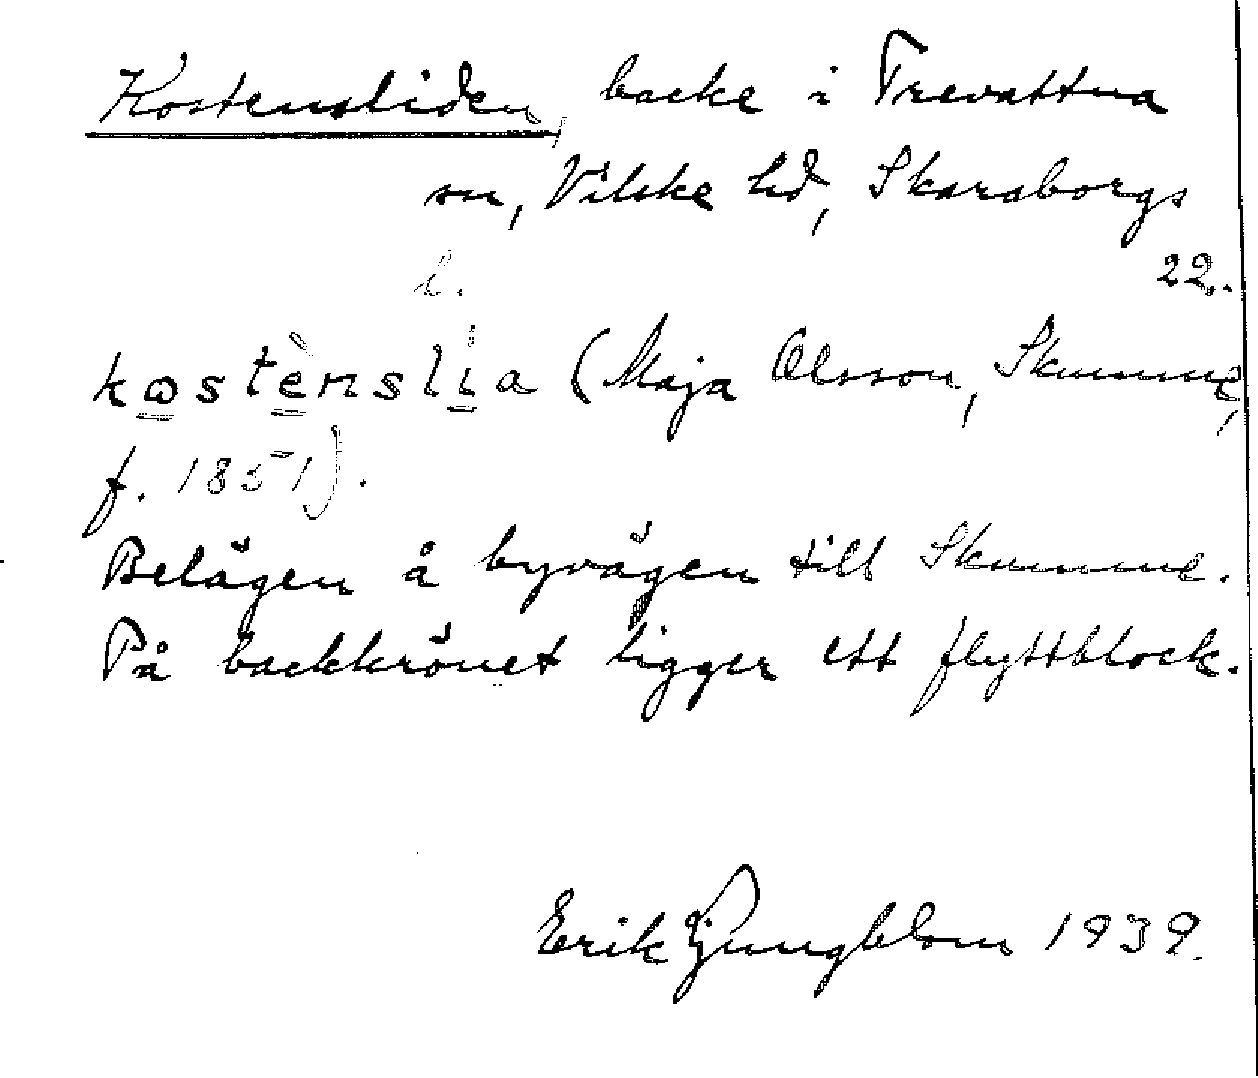 Kostensliden, backe i Trevattna
sn, Vilske hd, Skaraborgs
l.
22.
kostènslia (Maja Olsson, Skumme,
f. 1851).
Belägen å byvägen till Skumme.
På backkrönet ligger ett flyttblock.
Erik Ljungblom 1939.